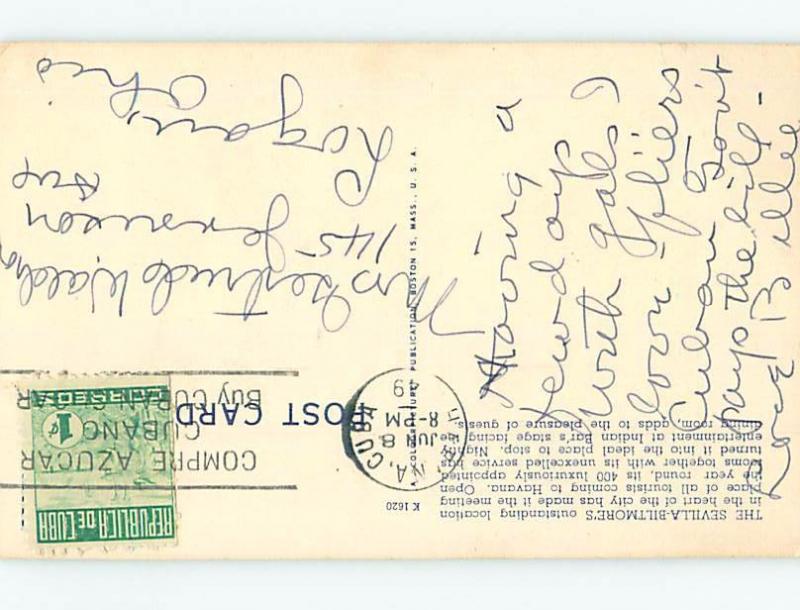 THE SEVILLA-BILTMORE'S outstanding location
in the heart of the city has made it the meeting
place of all tourists coming to Havana. Open
the year round, its 400 luxuriously appointed
rooms together with its unexcelled service has
turned it into the ideal place to stop. Nightly
entertainment at Indian Bar's stage facing the
dining room, adds to the pleasure of guests.
K 1620
POST CARD
A "COLOURPICTURE" PUBLICATION, BOSTON 15, MASS., U. S. A.
REPUBLICA DE CUBA
1¢
CORREOS
COMPRE AZUCAR
CUBANO
BUY CUBAN SUGAR
HABANA, CUBA
JUN 8
8-PM
19
Having a
few days
with gals
down
Cuban Gov't
pays the bill -
Love Billee
Mrs Gertrude Waldron
145
Ave
Logan,
Ohio